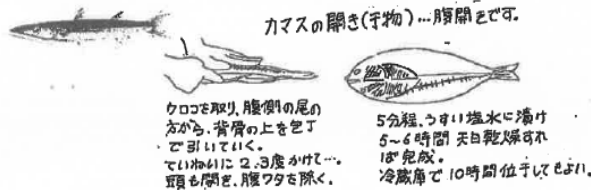 カマスの開き(干物)…腹開きです。
ウロコを取り、腹側の尾の
方から、背骨の上を包丁
で引いていく。
ていねいに2.3度かけて…。
頭も開き、腹ワタを除く。
5分程、うすい塩水に漬け
5~6時間 天日乾燥すれ
ば完成。
冷蔵庫で10時間位干してもよい。